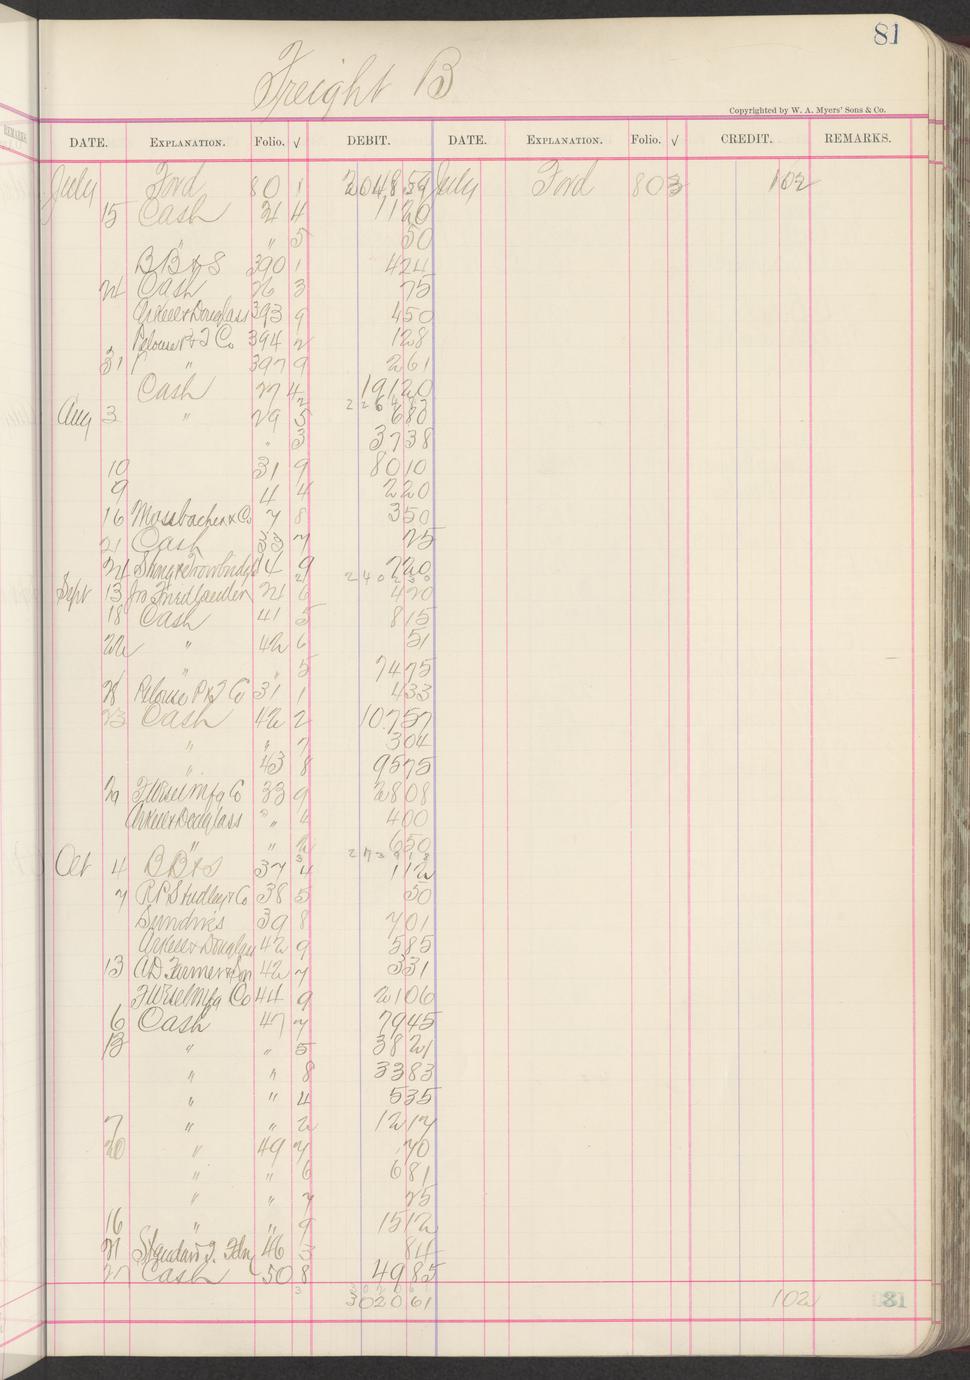 81
Freight B
Copyrighted by W. A. Myers' Sons & Co.
DATE. EXPLANATION. Folio. √ DEBIT. DATE. EXPLANATION. Folio. √ CREDIT. REMARKS.
July Ford 80 1 2048 59 July Ford 80 3 1 02
15 Cash 24 4 11 20
" " 5 50
B B & S 390 1 4 24
24 Cash 26 3 75
Arkell & Douglass 393 9 4 50
Pelouse P & J Co 394 2 1 28
31 " 397 9 2 61
Cash 27 4 191 20
Aug 3 " 29 5 6 80
" 3 37 38
10 31 9 80 10
9 4 4 2 20
16 Mossbacher & Co 7 8 3 50
21 Cash 33 7 25
24 14 9 7 20
2402 30
Sept 13 Jno Friedlaender 24 6 4 20
18 Cash 41 5 8 15
22 " 42 6 51
" " 5 74 75
28 Pelouse P & J Co 31 1 4 33
23 Cash 42 2 107 57
" " 7 3 04
" 43 8 95 75
29 F Wesel Mfg Co 33 9 28 08
Arkell & Douglass " " 4 4 00
" " 6 50
Oct 4 B B & S 37 4 1 12
7 R P Studley & Co 38 5 50
Sundries 39 8 7 01
Arkell & Douglass 42 9 5 85
13 A D Farmer & Son 42 7 3 31
F Wesel Mfg Co 44 9 21 06
6 Cash 47 7 79 45
13 " " 5 38 21
" " 8 33 83
" " 4 5 35
7 " " 2 12 17
20 " 49 7 70
" " 6 6 81
" " 7 25
16 " " 9 15 12
21 Standard T. Fdn 46 3 84
27 Cash 50 8 49 85
3020 61 1 02 81